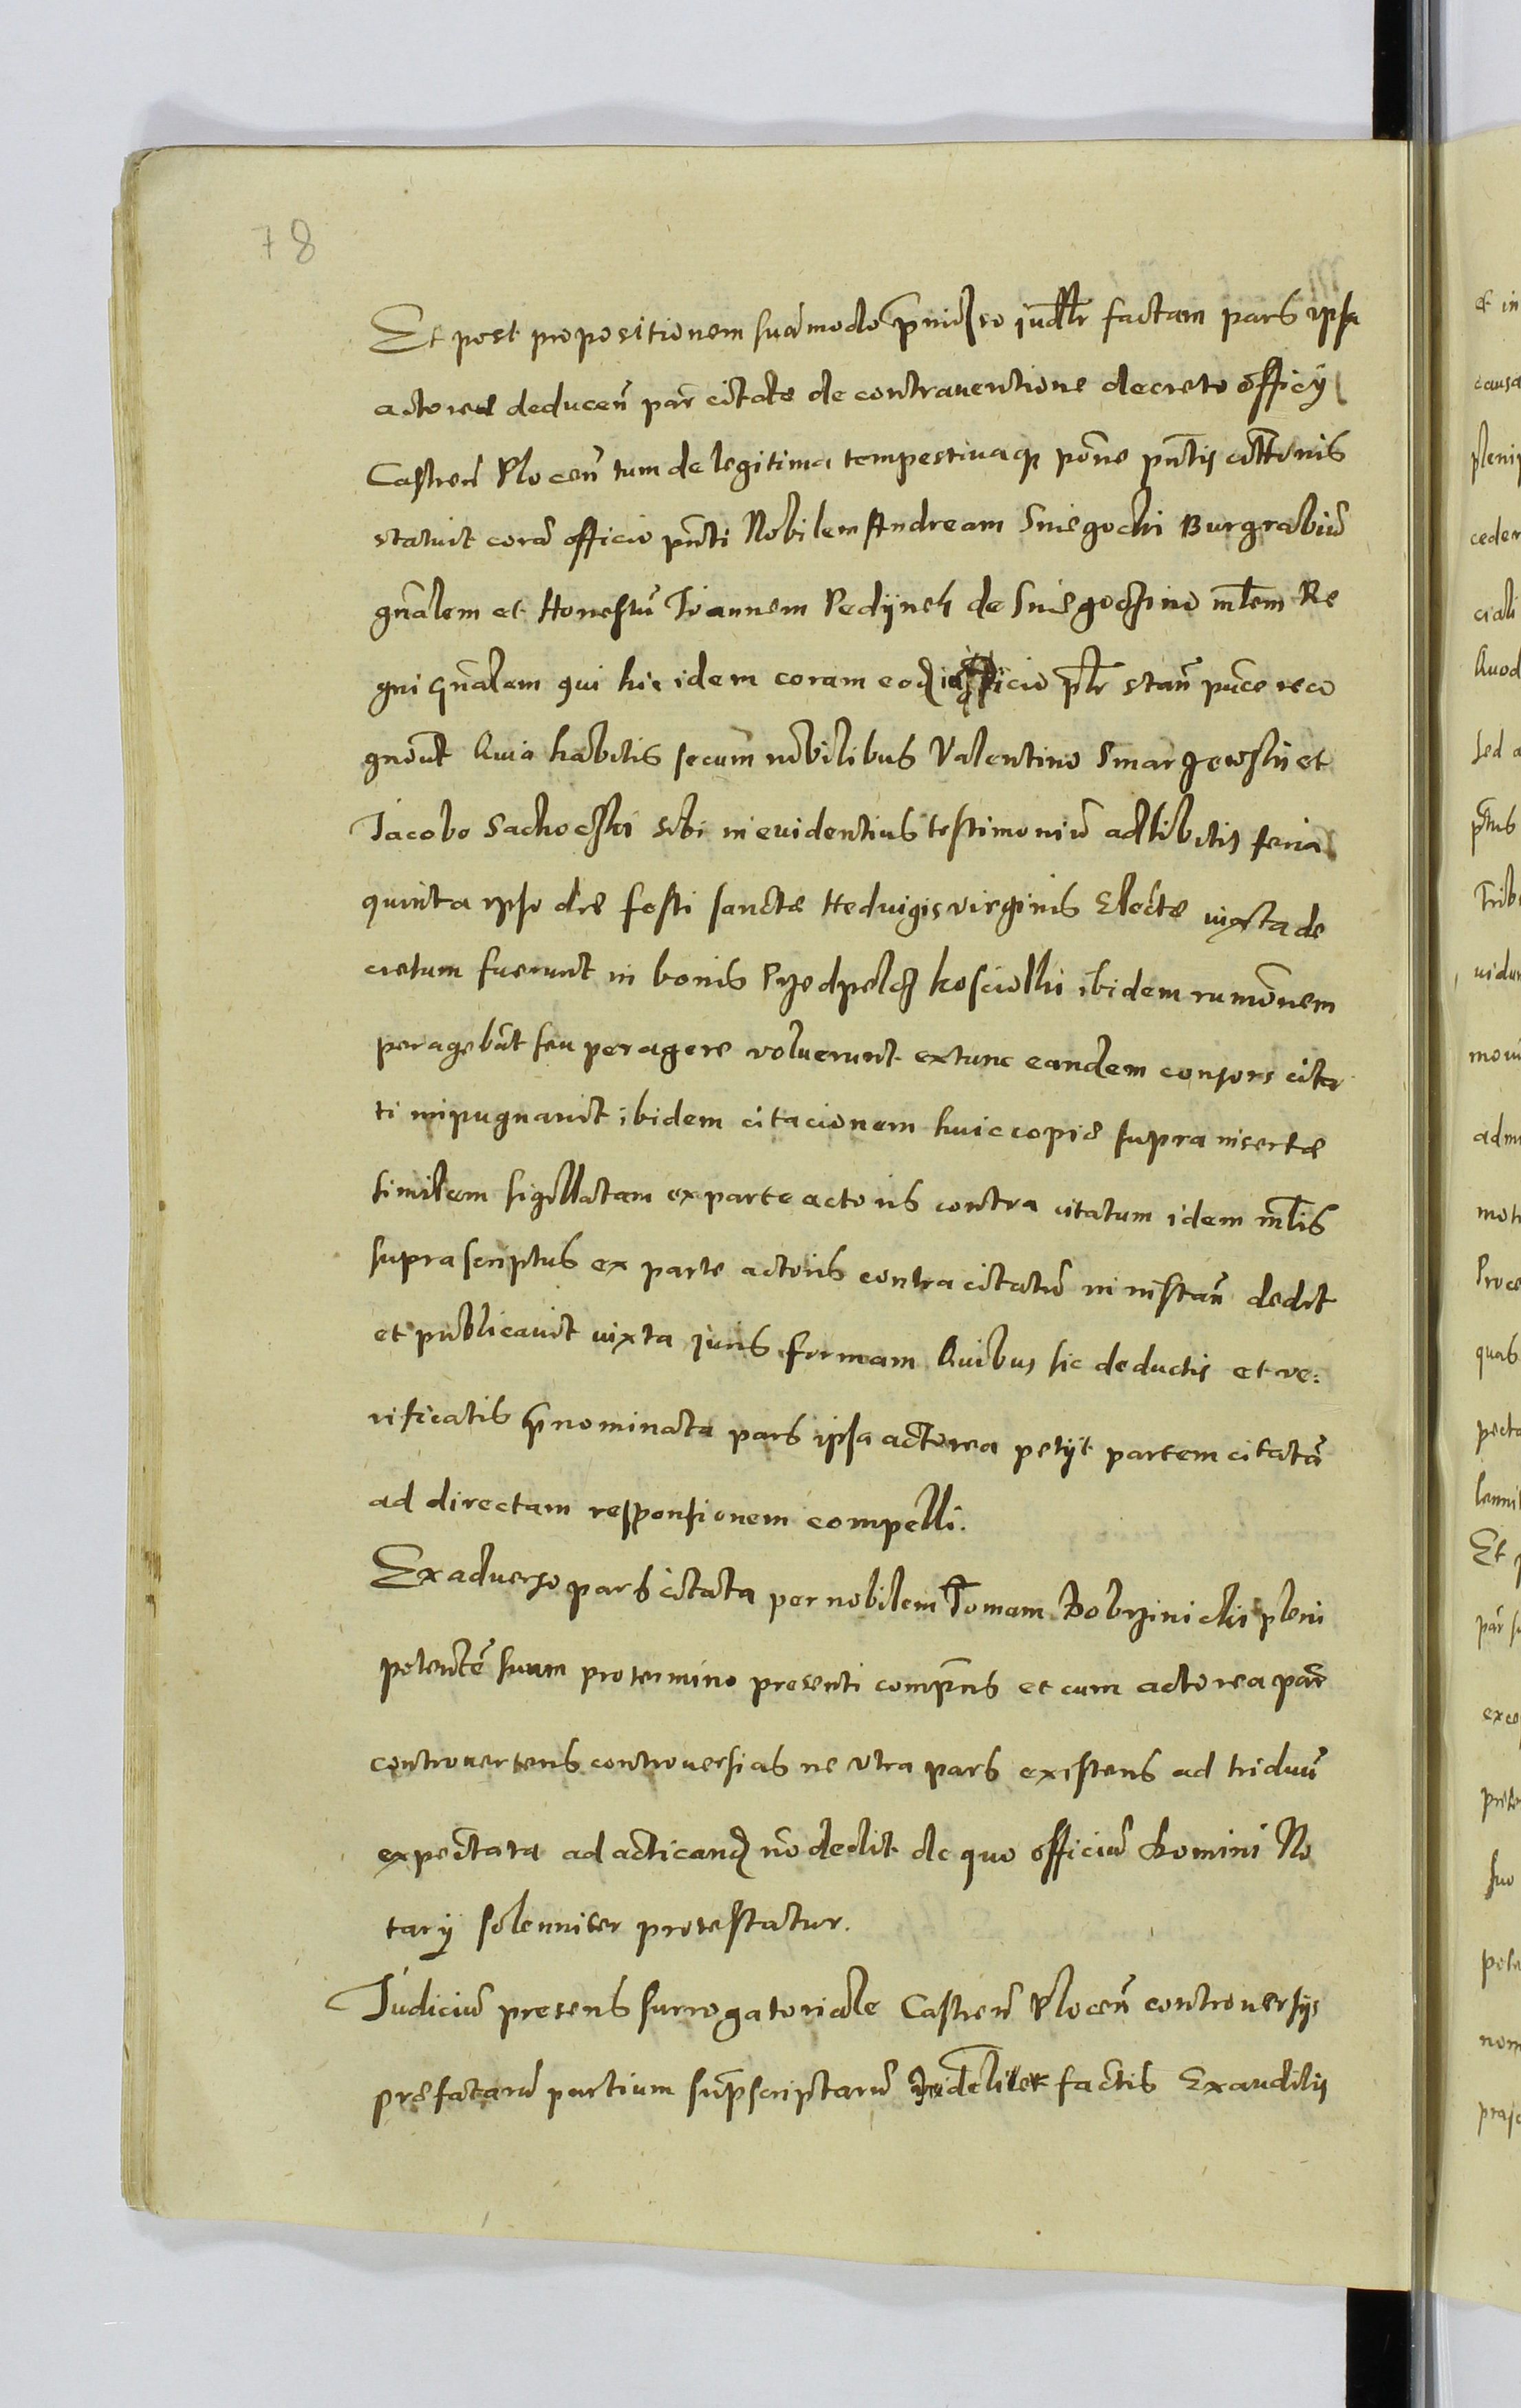 78
Et post propositionem suā modo p̄mi judlr factam pars ipsa
actorea deducen̄ par̄ citatæ de contrauentione decreto officÿ
Castren̄ Plocen̄ tum de legitima tempestiuaq₃ po͞ne pn̄tis citt͞onis
statuit corā officio pn̄ti Nobilem Andream Sniegocki Burgrabiū
gn̄alem et Honestū Joannem Pedÿnek de Sniegoczino m̄lem Re
gni gn̄alem qui hic idem coram eod officio p̄lr stan̄ pu͞ce reco
gnōut Quia habitis secum nobilibus Valentino Smarzewskÿ et
Jacobo Sachoczki sibi in euidentius testimoniū adhibitis feria
quinta ipso die festi sanctæ Heduigis virginis Electæ iuxta de
cretum fuerunt in bonis Przedpelcz koscielki ibidem rum͞onem
peragebāt seu peragere voluerunt extunc eandem consors cita
ti inpugnauit ibidem citacionem huic copiæ supra insertæ
similem sigillatam ex parte actoris contra citatum idem m̄lis
supra scriptus ex parte actoris contra citatū in instan̄ dedit
et publicauit iuxta juris formam Quibus sic deductis et ve:
rificatis p̄nominata pars ipsa actorea petÿt partem citatā
ad directam responsionem compelli.
Ex aduerso pars citata per nobilem Tomam Bobrzinicki pleni
potentē suum pro termino presenti compn̄s et cum actorea par̄
controuertens controuersias ne vtra pars existens ad triduū
expectata ad acticand nō dedit de quo officiū Domini No
tarÿ solenniter protestatur.
Judiciū presens surrogatoriale Castren̄ Plocen̄ controuersÿs
præfatarū partium sup̄scriptarū factis Exauditis